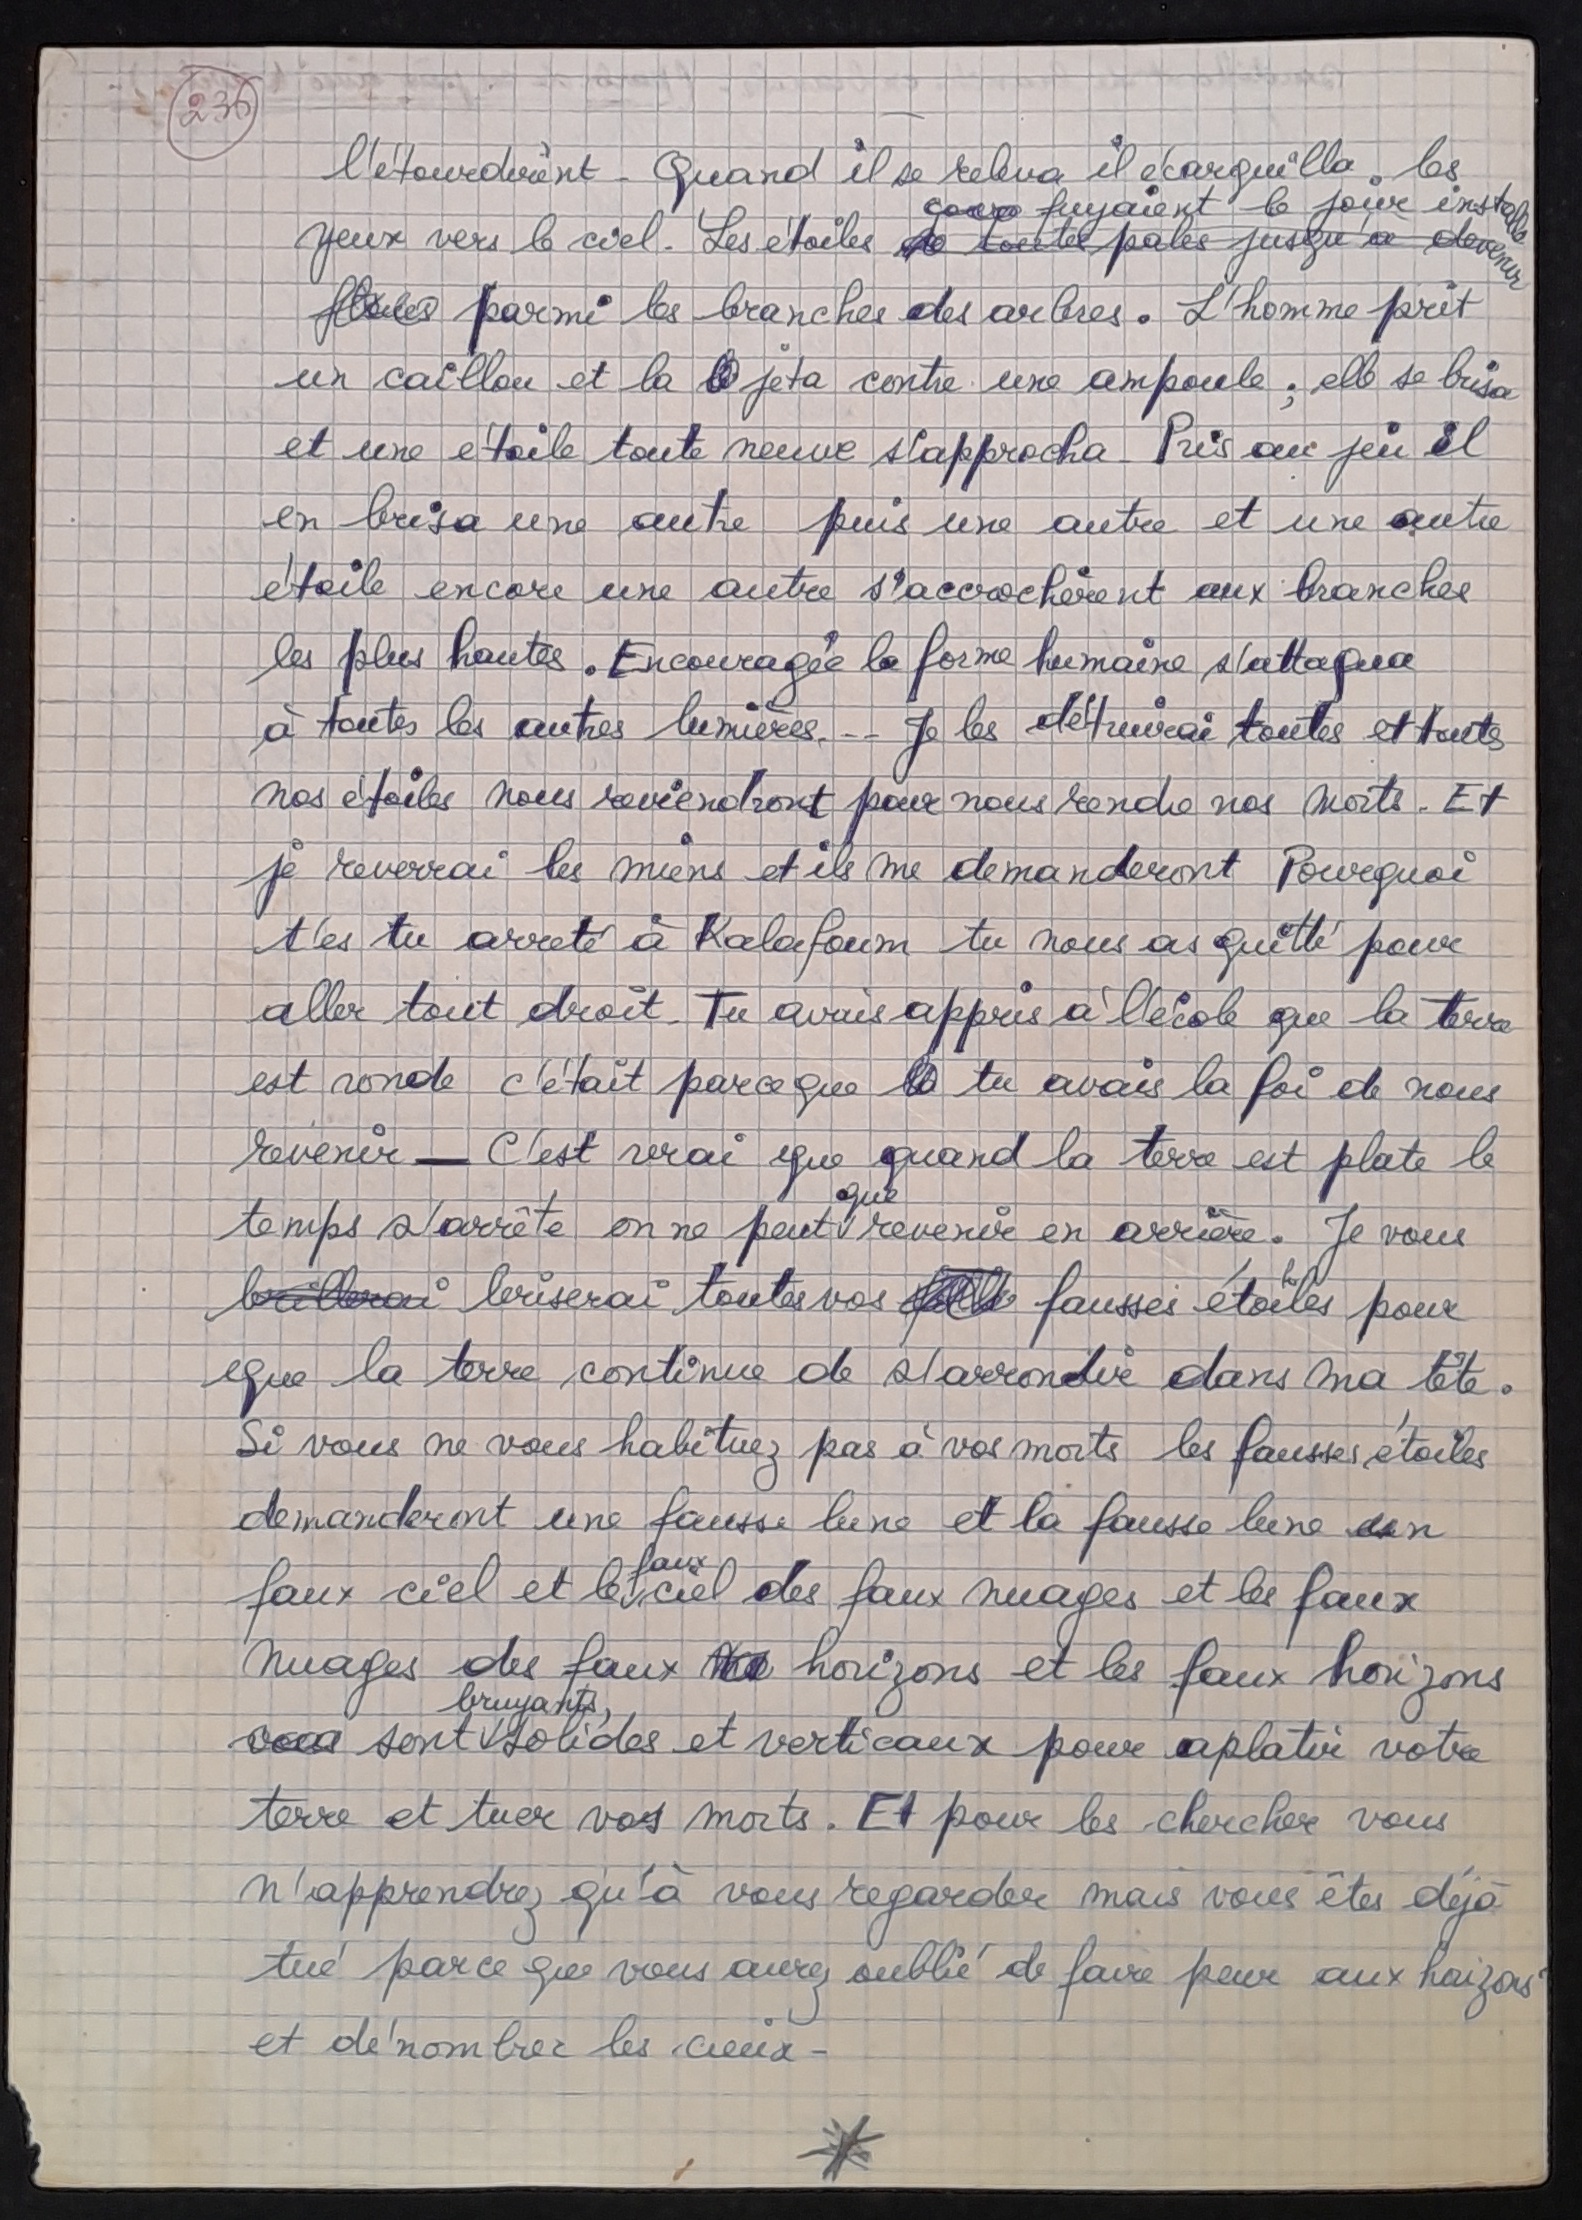 236
l'étourdirènt - Quand il se releva il écarquilla les
fuyaient le jour installé
yeux vers le ciel. Les étoiles toutes pales jusqu'à devenir
floues parmi les branches des arbres. L'homme prit
un caillou et la jeta contre une ampoule ; elle se brisa
et une étoile toute neuve s'approcha - Pris au jeu il
en brisa une autre puis une autre et une autre
étoile encore une autre s'accrochèrent aux branches
les plus hautes. Encouragée la forme humaine s'attaqua
à toutes les autres lumières. -- Je les détruirai toutes et toutes
nos étoiles nous reviendront pour nous rendre nos morts. Et
je reverrai les miens et ils me demanderont Pourquoi
t'es tu arreté à Kalafoum tu nous as quitté pour
aller tout droit - Tu avais appris à l'école que la terre
est ronde c'était parceque tu avais la foi de nous
revenir — C'est vrai que quand la terre est plate le
que
temps s'arrête on ne peut revenir en arrière. Je vous
brillerai briserai toutes vos fausses étoiles pour
que la terre continue de s'arrondir dans ma tête.
Si vous ne vous habituez pas à vos morts les fausses étoiles
demanderont une fausse lune et la fausse lune un
faux
faux ciel et le ciel des faux nuages et les faux
nuages des faux horizons et les faux horizons
bruyants,
sont solides et verticaux pour aplatir votre
terre et tuer vos morts. Et pour les chercher vous
n'apprendrez qu'à vous regarder mais vous êtes déjà
tué parce que vous aurez oublié de faire peur aux horizons
et dénombrer les cieux -